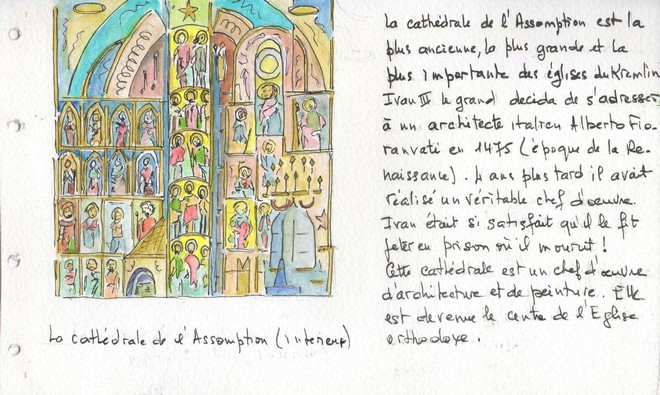 La cathédrale de l'Assomption est la
plus ancienne, la plus grande et la
plus importante des églises du Kremlin
Ivan III le grand decida de s'adresser
à un architecte italien Alberto Fio-
ranvati en 1475 (époque de la Re-
naissance). 4 ans plus tard il avait
réalisé un véritable chef d'oeuvre.
Ivan était si satisfait qu'il le fit
jeter en prison où il mourut !
Cette cathédrale est un chef d'oeuvre
d'architecture et de peinture. Elle
est devenue le centre de l'Eglise
orthodoxe.
La cathédrale de l'Assomption (interieur)